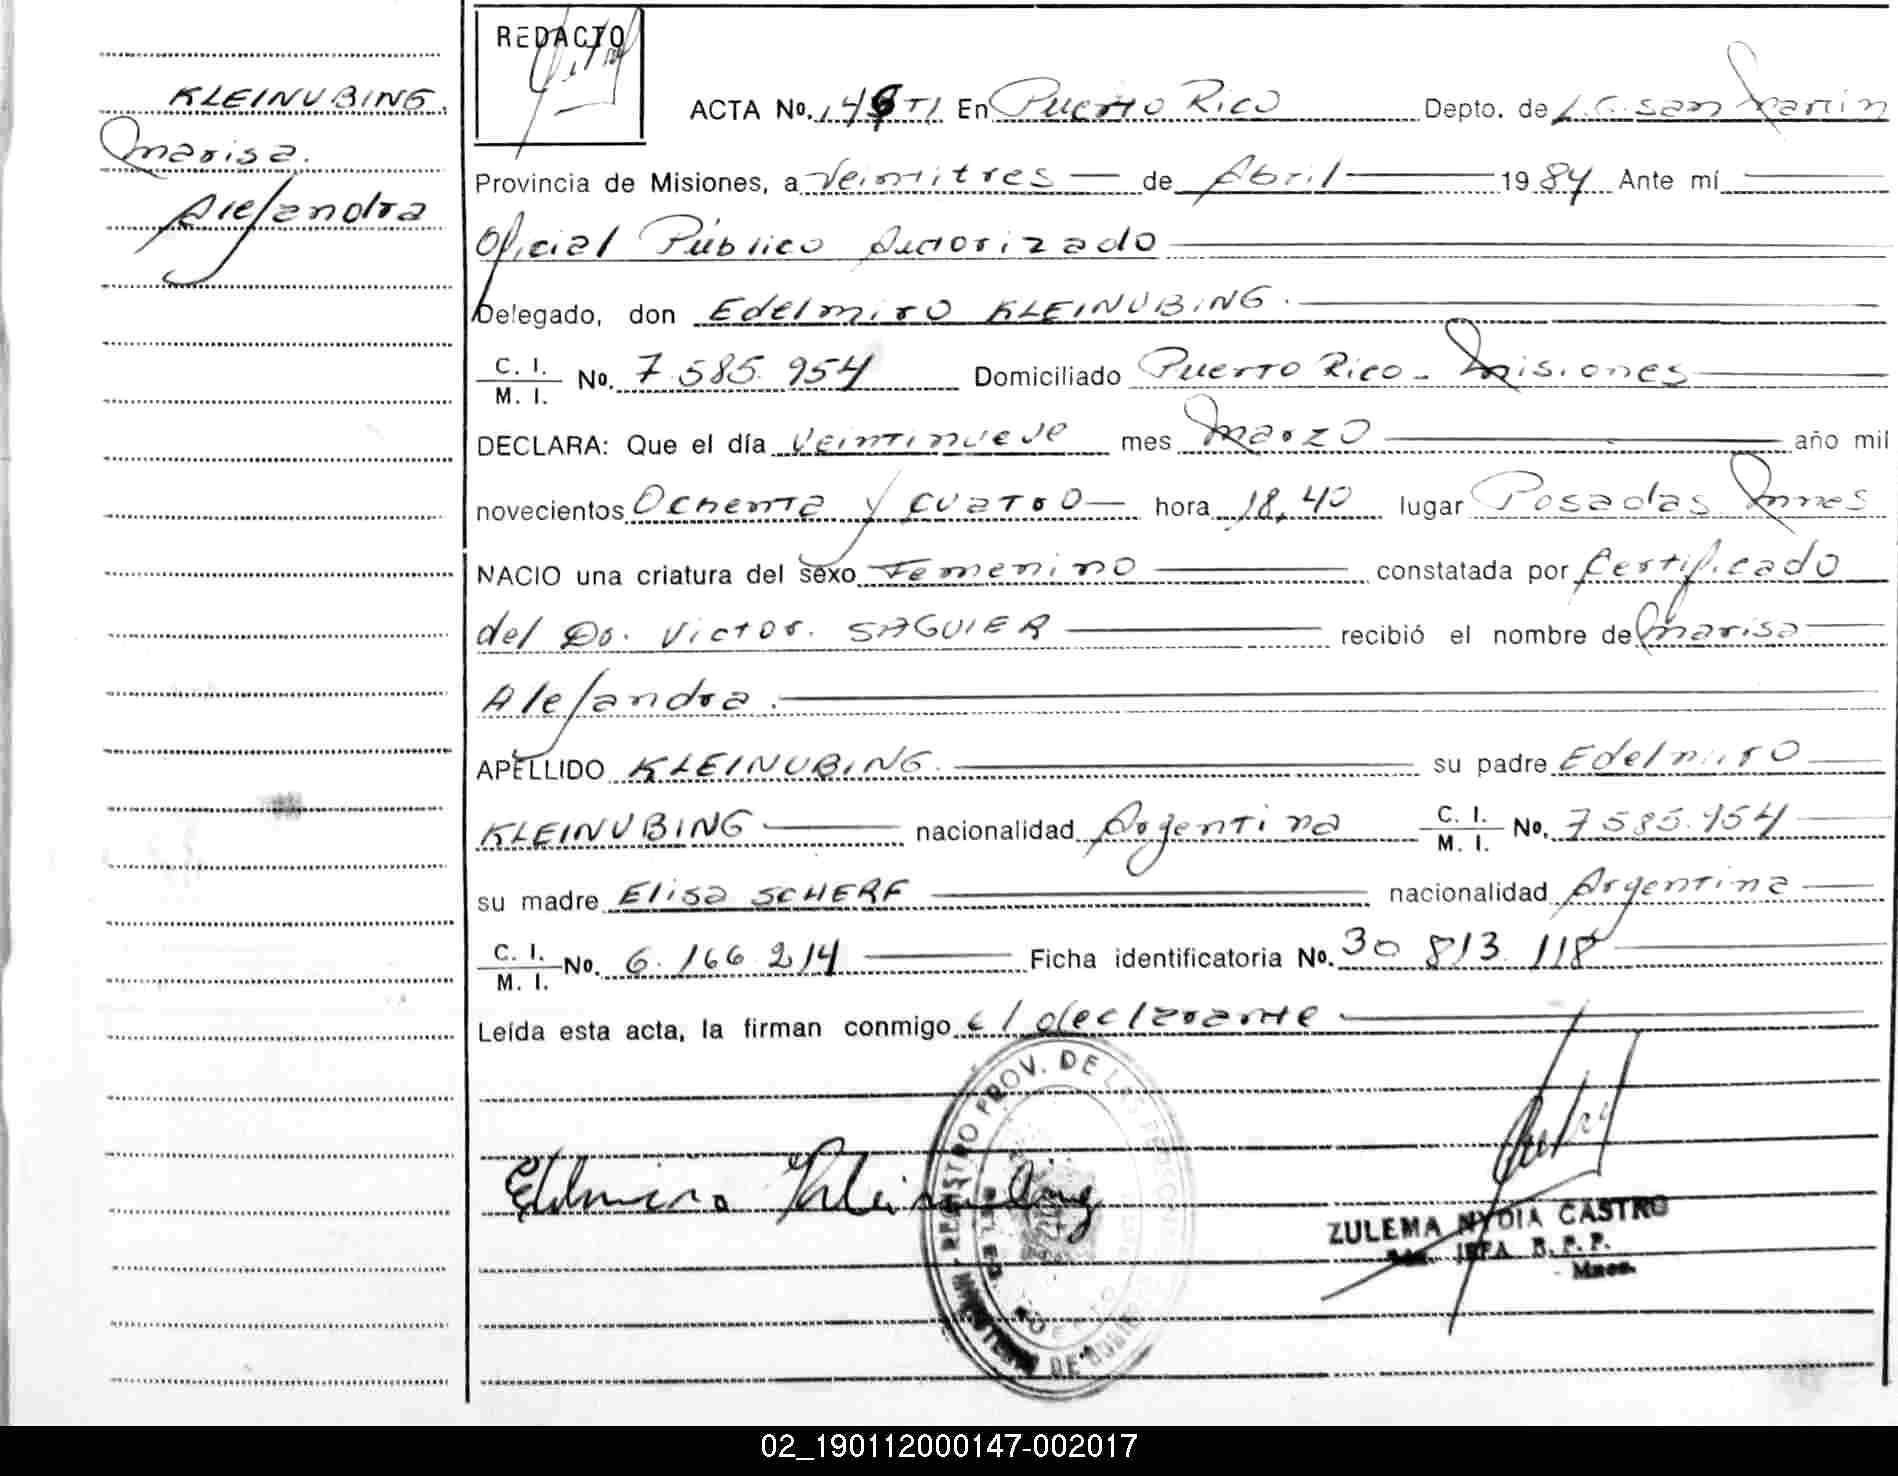 REDACTO
KLEINUBING.
Marisa.
Alejandra
ACTA No. En Puerto Rico Depto. de L.G. San Martín
Provincia de Misiones, a Veintitres de Abril 1984 Ante mí
Oficial Público Autorizado
Delegado, don Edelmiro KLEINUBING.
C. I.
M. I. No. 7.585.954 Domiciliado Puerto Rico - Misiones
DECLARA: Que el día veintinueve mes Marzo año mil
novecientos Ochenta y cuatro hora 18,40 lugar Posadas Mnes
NACIO una criatura del sexo Femenino constatada por Certificado
del Dr. Victor. SAGUIER recibió el nombre de Marisa
Alejandra.
APELLIDO KLEINUBING. su padre Edelmiro
KLEINUBING nacionalidad Argentina C. I.
M. I. No. 7.585.954
su madre Elisa SCHERF nacionalidad Argentina
C. I.
M. I. No. 6.166.214 Ficha identificatoria No. 30 813 118
Leída esta acta, la firman conmigo el declarante
REGISTRO PROV. DE LAS PERSONAS
MINISTERIO DE GOBIERNO
Edelmiro Kleinubing
ZULEMA NYDIA CASTRO
JEFA R.P.P.
Mnes.
02_190112000147-002017